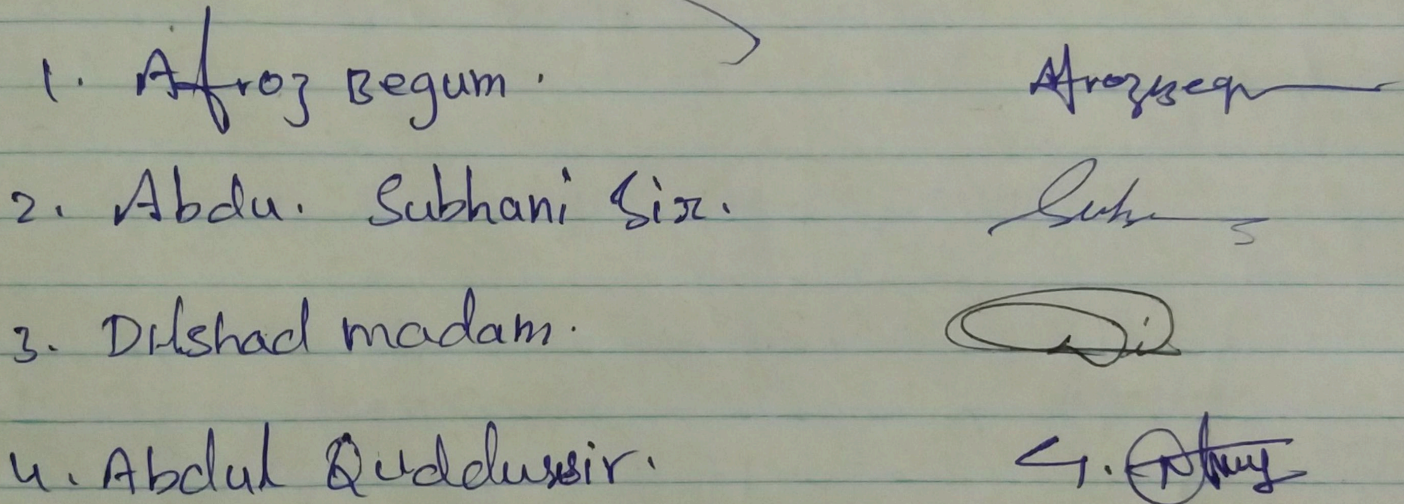 1. Afroz Begum. Afrozbeg
2. Abdu. Subhani Sir.
3. Dilshad madam.
4. Abdul Quddussir.